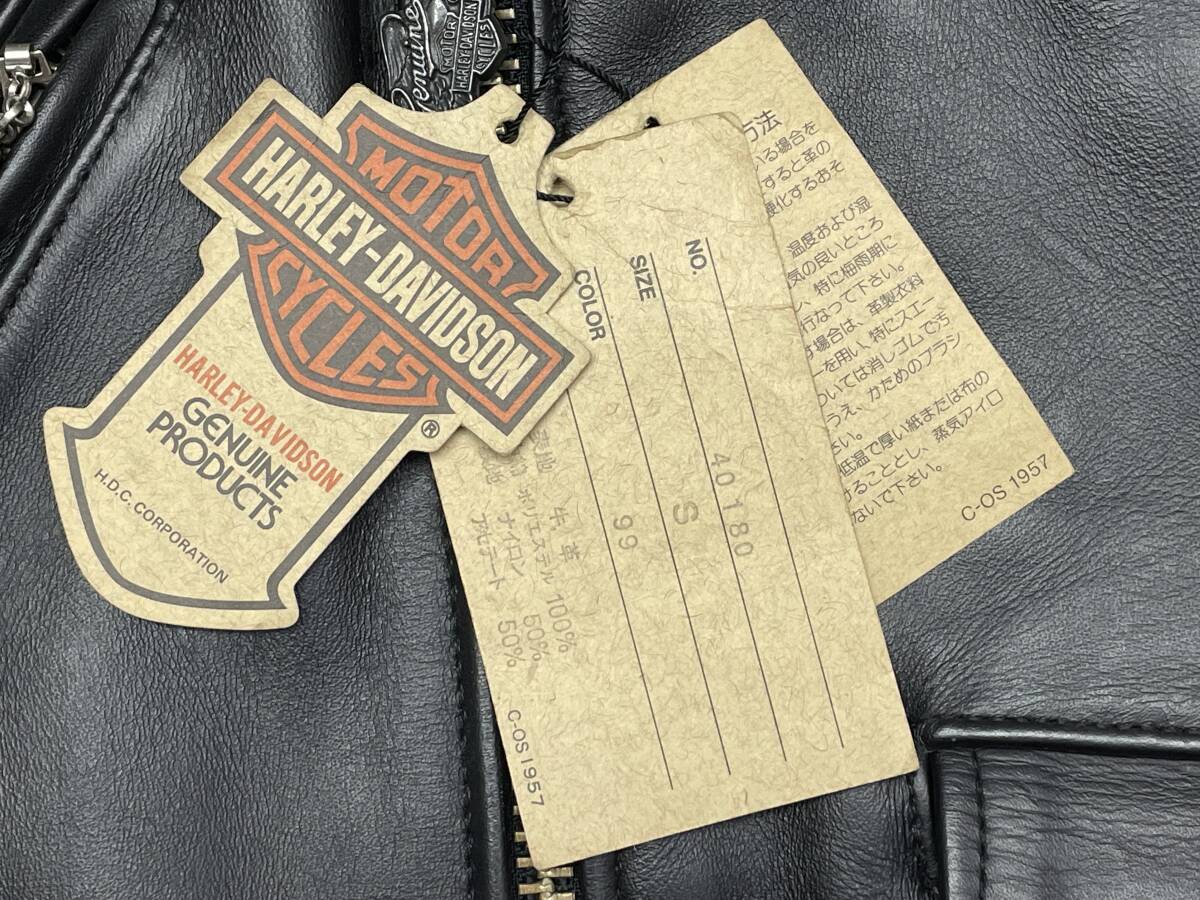 Genuine
MOTOR
HARLEY-DAVIDSON
CYCLES
MOTOR
HARLEY-DAVIDSON
CYCLES
®
HARLEY-DAVIDSON
GENUINE
PRODUCTS
H.D.C. CORPORATION
NO. 40180
SIZE S
COLOR 99
牛革
ポリエステル 100%
ナイロン 50%
アセテート 50%
C-OS 1957
方法
いる場合を
すると革の
硬化するおそ
温度および湿
気の良いところ
し、特に梅雨期に
行なって下さい。
す場合は、革製衣料
ーを用い、特にスエー
ついては消しゴムで汚
うえ、かためのブラシ
さい。
低温で厚い紙または布の
けることとし、蒸気アイロ
ないで下さい。
C-OS 1957